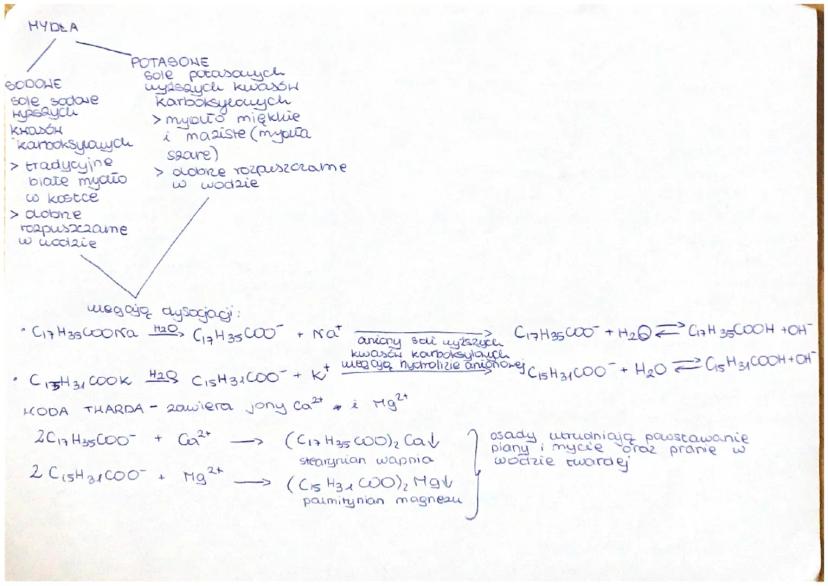 MYDŁA
SODOWE
sole sodowe
wyższych
kwasów
karboksylowych
> tradycyjne
białe mydło
w kostce
> dobrze
rozpuszczalne
w wodzie
POTASOWE
sole potasowych
wyższych kwasów
karboksylowych
> mydło miękkie
i maziste (mydła
szare)
> dobrze rozpuszczalne
w wodzie
ulegają dysocjacji:
• C17H35COONa H2O→ C17H35COO⁻ + Na⁺ → C17H35COO⁻ + H2O ⇄ C17H35COOH + OH⁻
aniony soli wyższych
kwasów karboksylowych
ulegają hydrolizie anionowej
• C15H31COOK H2O→ C15H31COO⁻ + K⁺ → C15H31COO⁻ + H2O ⇄ C15H31COOH + OH⁻
WODA TWARDA - zawiera jony Ca²⁺ i Mg²⁺
2C17H35COO⁻ + Ca²⁺ → (C17H35COO)2Ca↓
stearynian wapnia
2 C15H31COO⁻ + Mg²⁺ → (C15H31COO)2Mg↓
palmitynian magnezu
osady utrudniają powstawanie
piany i mycie oraz pranie w
wodzie twardej